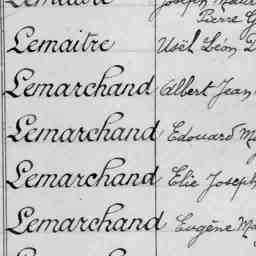 Lemaitre Joseph
Pierre G
Lemaitre Usèl Léon D
Lemarchand Albert Jean
Lemarchand Edouard Ma
Lemarchand Elie Joseph
Lemarchand Eugène Ma